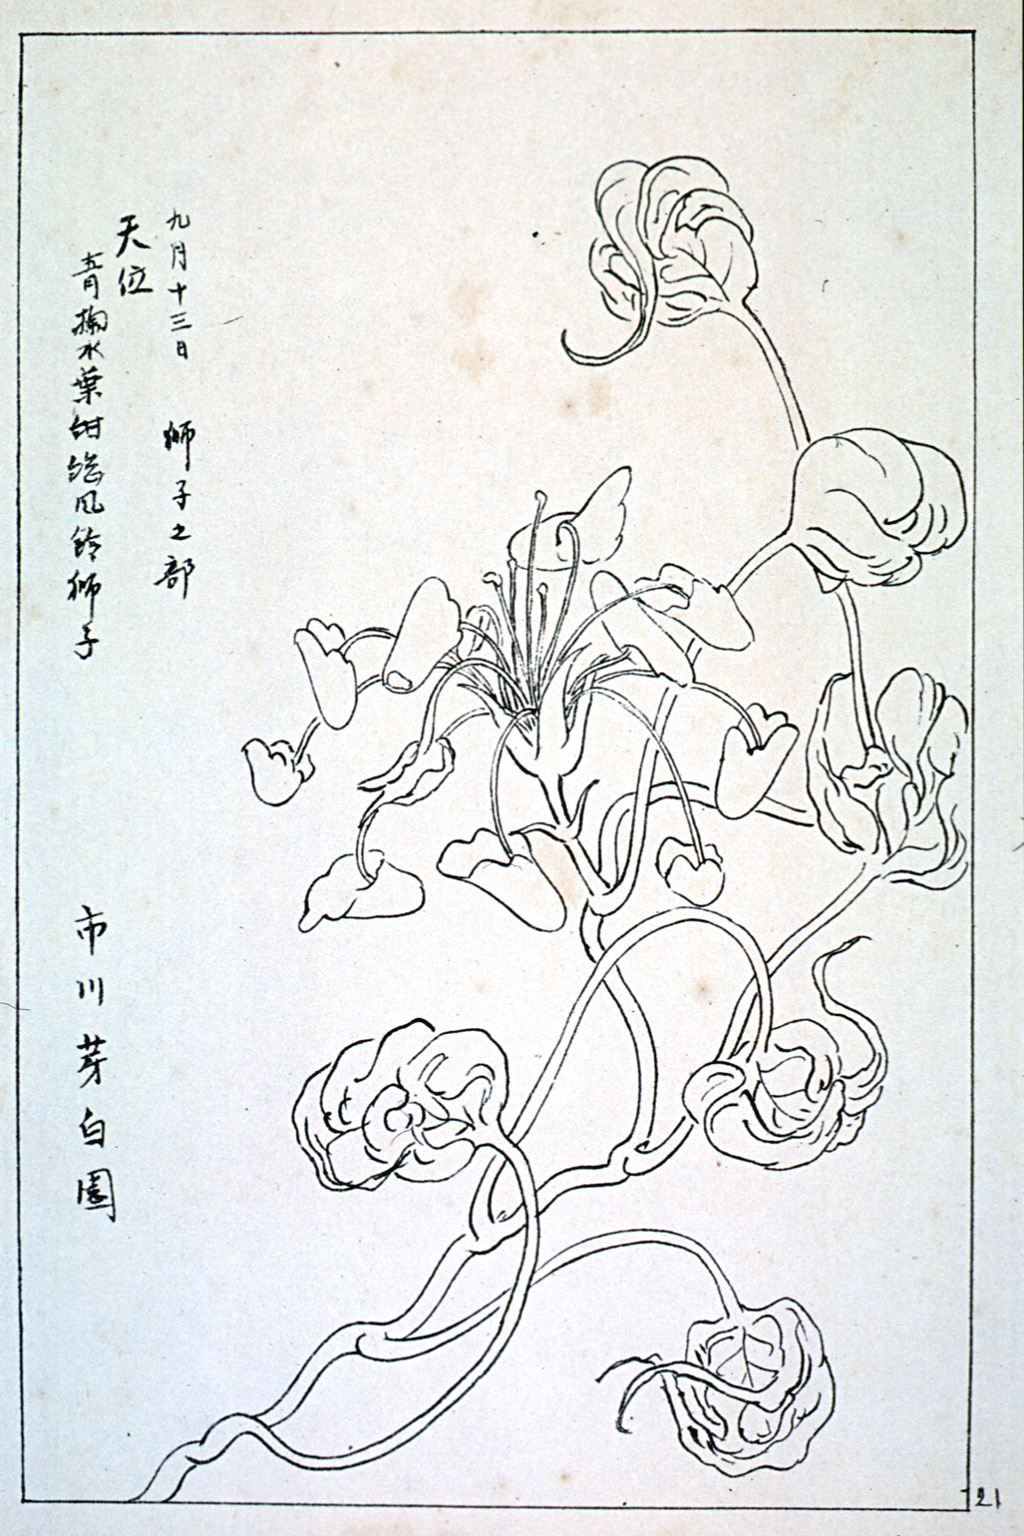 九月十三日 獅子之部
天位
青掬水葉紺総風鈴獅子
市川芽白園
21